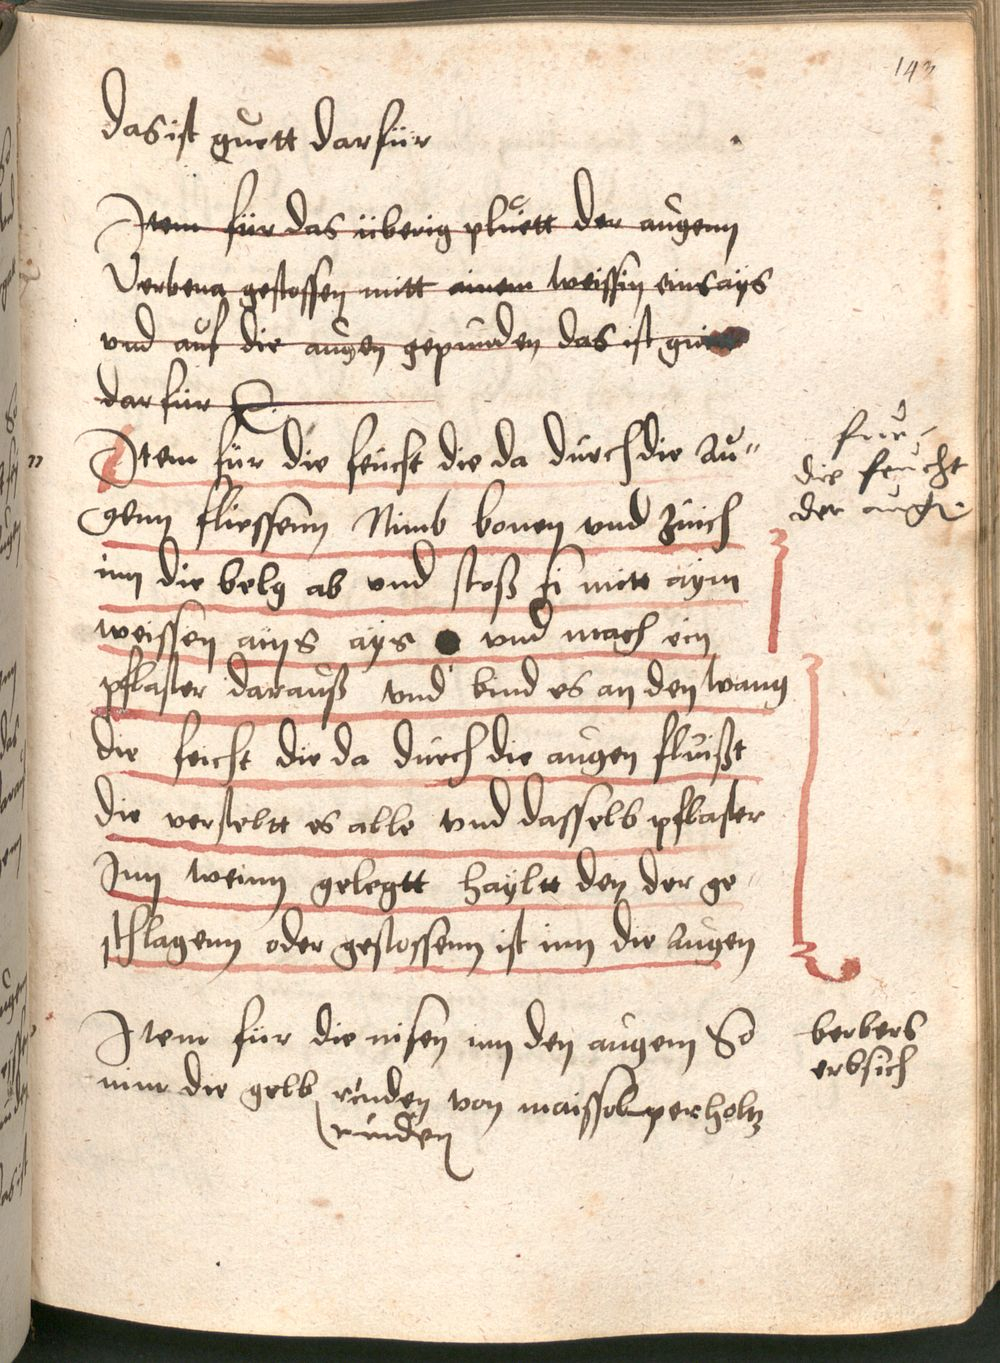 143
das ist guett darfür
Item für das überig pluett der augenn
Verbena gestossen mitt ainem weissin eins ays
vnd auf die augen gepunden das ist
darfür
Item für die feücht die da dürch die Au"
genn fliessenn Nimb bonen vnd züich
inn die belg ab vnd stoß si mitt aym
weissen ains ays vnd mach ein
pflaster darauß vnd bind es an den wang
die feicht die da dürch die augen flüißt
die versteltt es alle vnd dasselb pflaster
Inn weinn gelegtt hayltt den der ge"
schlagenn oder gestossenn ist inn die Augen
für
die feücht
der auge
Item für die nisen inn den augenn So
nim die gelb rinden von maisselperholtz
rinden
berbers
erbsich